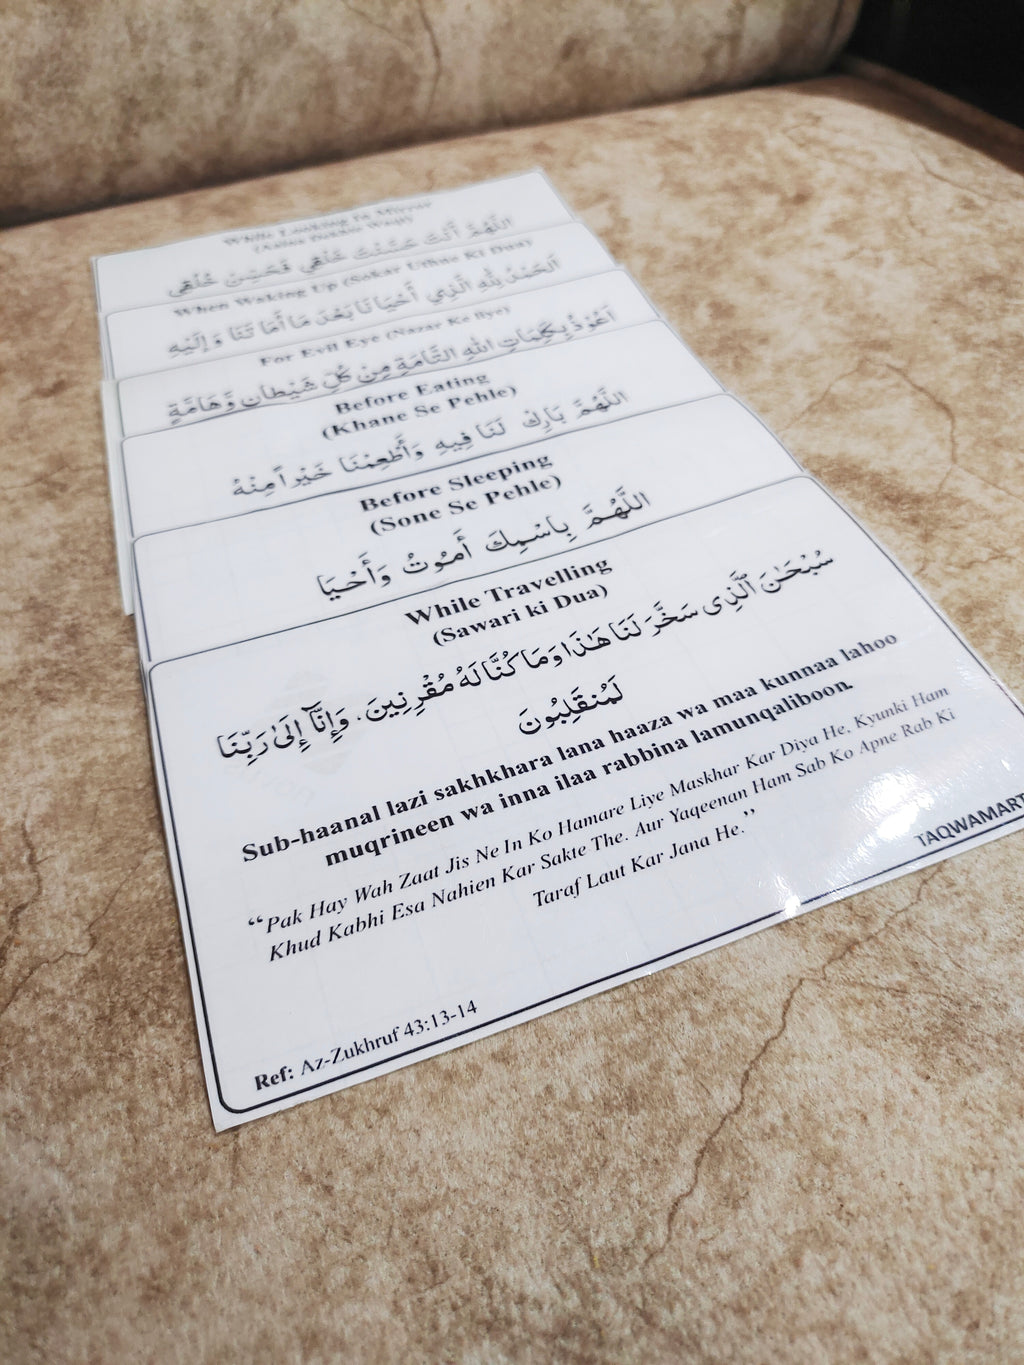 While Looking In Mirror
اللَّهُمَّ أَنْتَ حَسَّنْتَ خَلْقِي فَحَسِّنْ خُلُقِي
When Waking Up (Sokar Uthne Ki Dua)
اَلْحَمْدُ لِلّٰهِ الَّذِي أَحْيَا نَا بَعْدَ مَا أَمَا تَنَا وَإِلَيْهِ
For Evil Eye (Nazar Ke liye)
اَعُوْذُ بِكَلِمَاتِ اللهِ التَّامَّةِ مِنْ كُلِّ شَيْطَانٍ وَّهَامَّةٍ
Before Eating
(Khane Se Pehle)
اللَّهُمَّ بَارِكْ لَنَا فِيهِ وَأَطْعِمْنَا خَيْراً مِنْهُ
Before Sleeping
(Sone Se Pehle)
اللَّهُمَّ بِاسْمِكَ أَمُوْتُ وَأَحْيَا
While Travelling
(Sawari ki Dua)
سُبْحَٰنَ ٱلَّذِى سَخَّرَ لَنَا هَٰذَا وَمَا كُنَّا لَهُۥ مُقْرِنِينَ. وَإِنَّآ إِلَىٰ رَبِّنَا
لَمُنقَلِبُونَ
Sub-haanal lazi sakhkhara lana haaza wa maa kunnaa lahoo
muqrineen wa inna ilaa rabbina lamunqaliboon.
“Pak Hay Wah Zaat Jis Ne In Ko Hamare Liye Maskhar Kar Diya He, Kyunki Ham
Khud Kabhi Esa Nahien Kar Sakte The. Aur Yaqeenan Ham Sab Ko Apne Rab Ki
Taraf Laut Kar Jana He.”
TAQWAMART
Ref: Az-Zukhruf 43:13-14